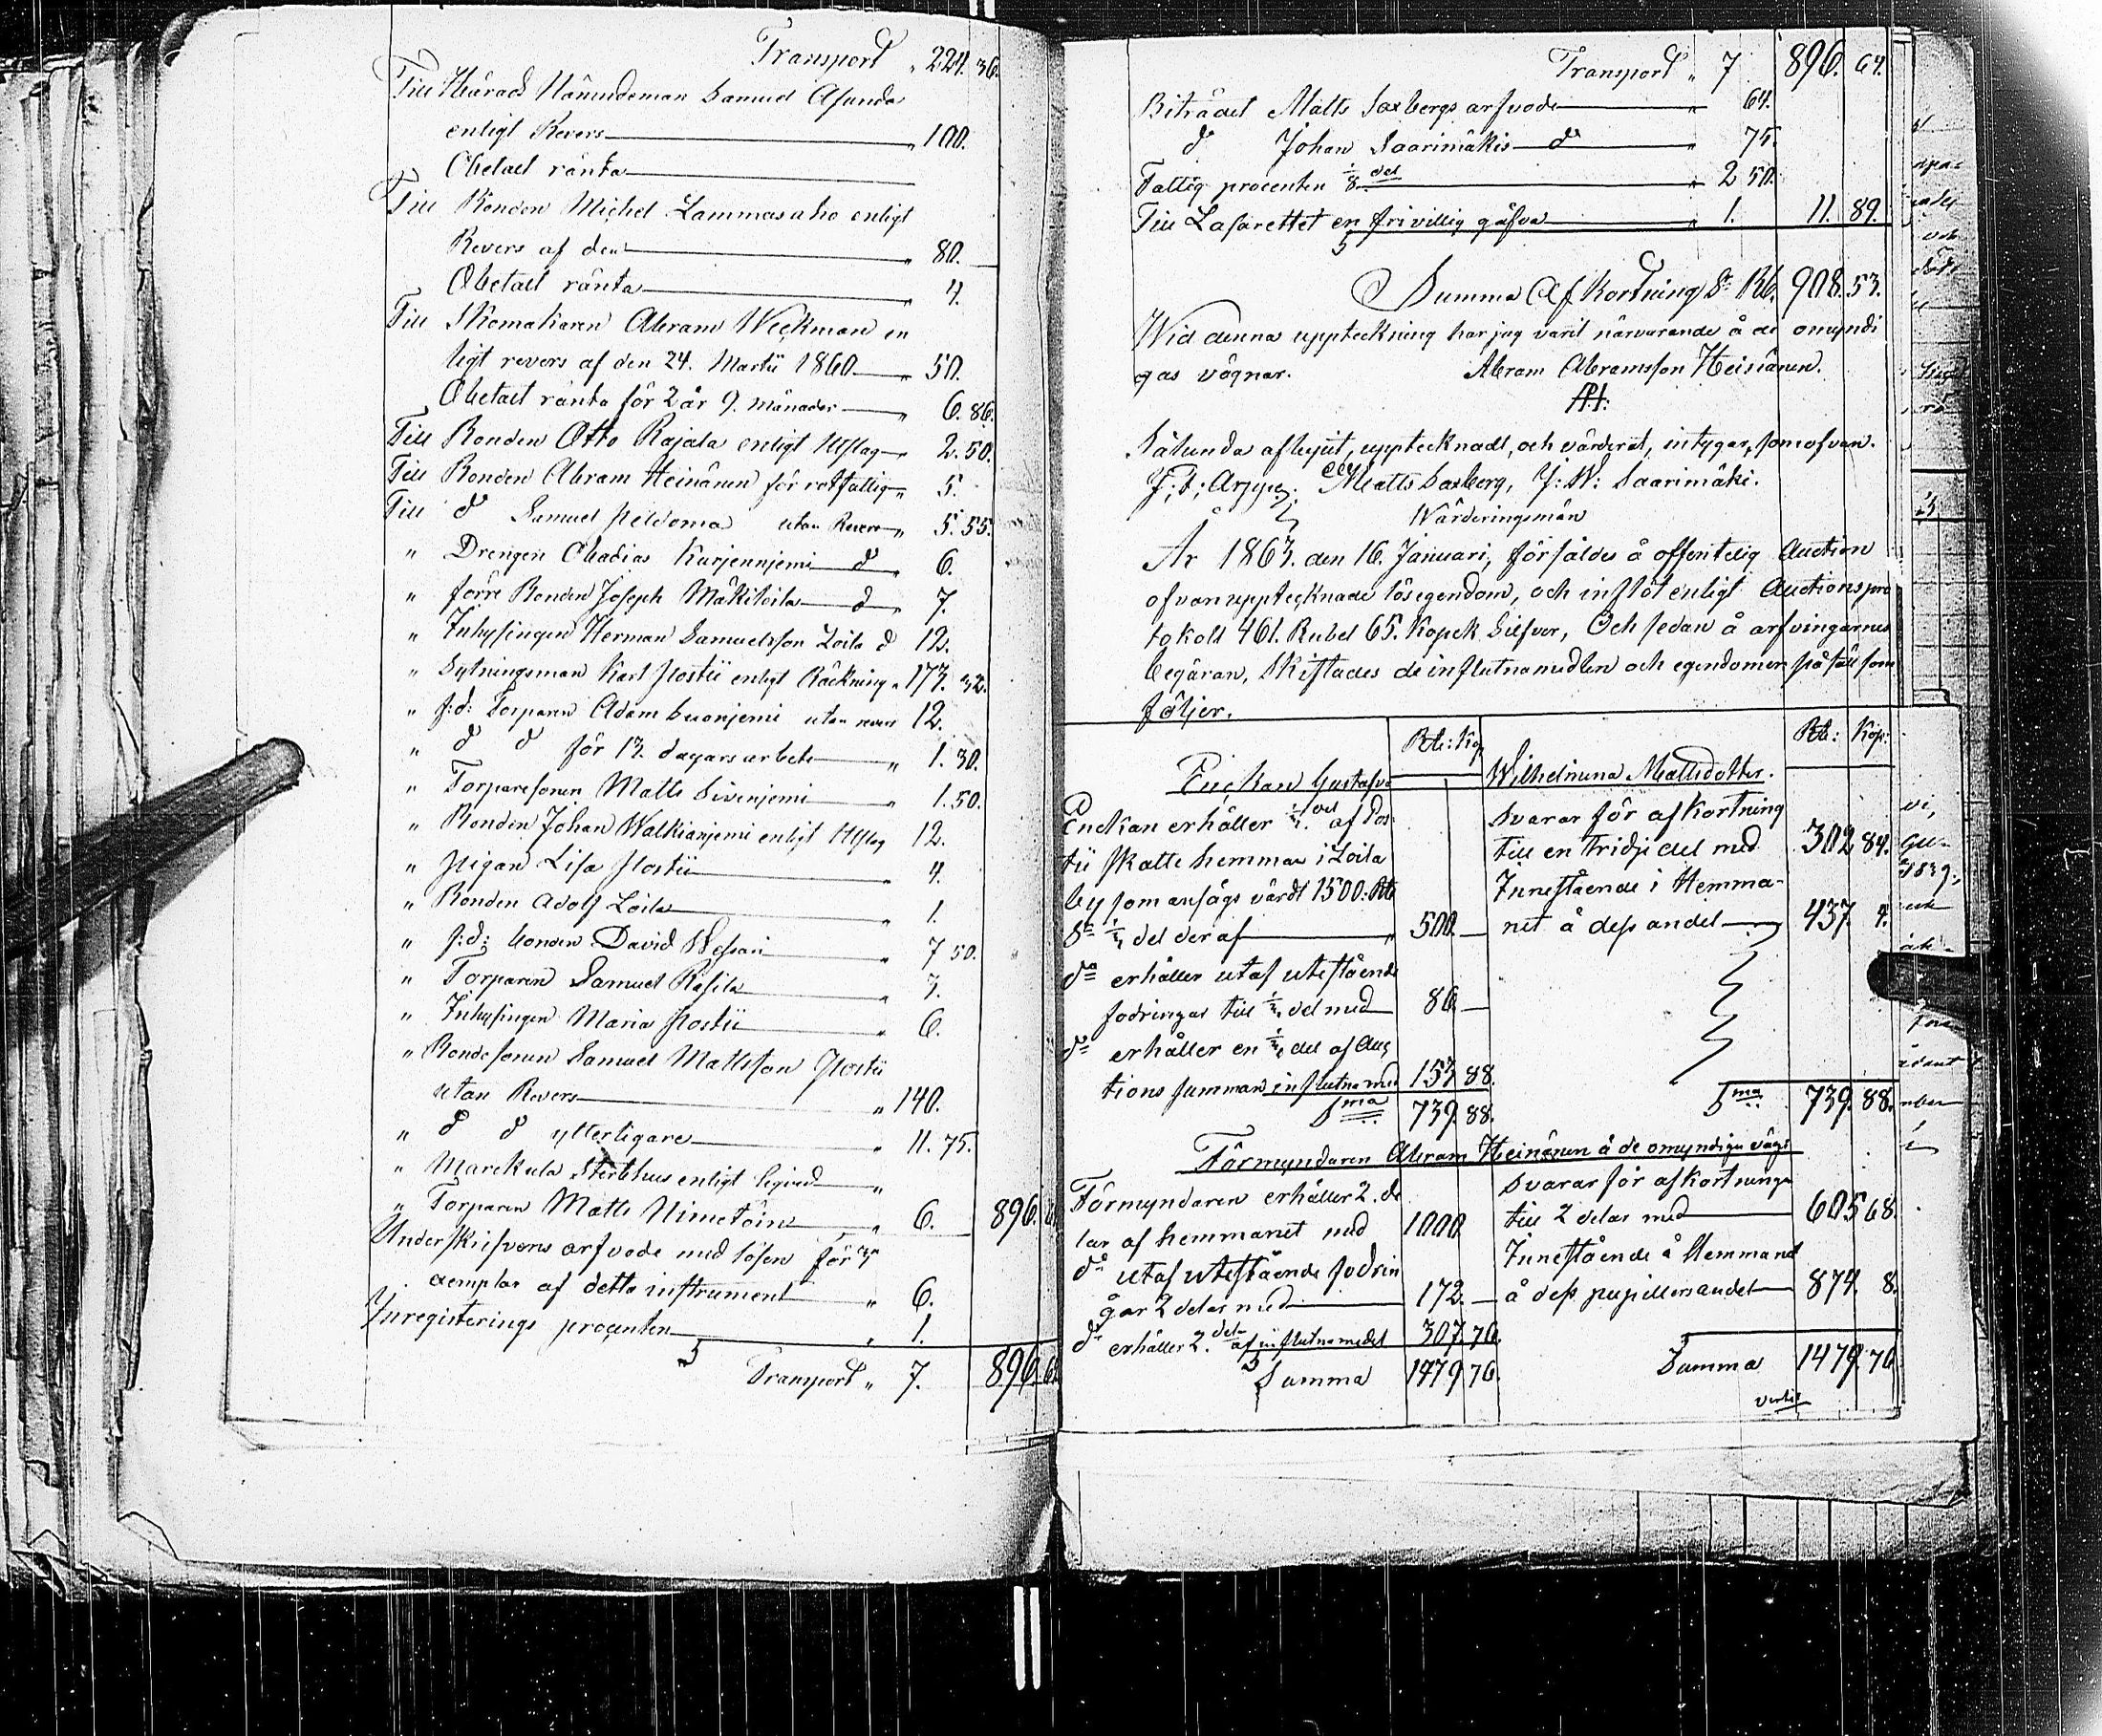 Transport " 224. 36.
Till Härads Nämndeman Samuel Asunda
enligt Revers " 100.
Obetalt ränta
Till Bonden Michel Lammasaho enligt
Revers af den " 80.
Obetalt ränta " 4.
Till Skomakaren Abram Weckman en
ligt revers af den 24. Martii 1860 " 50.
Obetalt ränta för 2 år 9. månader " 6. 86.
Till Bonden Otto Rajala enligt Utslag " 2. 50.
Till Bonden Abram Heinänen för rotfattig " 5.
Till d° Samuel Peldoma utan Revers " 5. 55.
" Drengen Abadias Kurjenniemi d° " 6.
" förre Bonden Joseph Mäkiloila d° " 7.
" Inhysingen Herman Samuelsson Loila d° 12.
" Sytningsman Karl Postii enligt Räckning " 173. 32.
" f:d: Torparen Adam Suonjemi utan revers 12.
" d° d° för 13. dagars arbete " 1. 30.
" Torparesonen Matts Sivenjemi " 1. 50.
" Bonden Johan Walkianjemi enligt Utslag 12.
" Pigan Lisa Postii " 4.
" Bonden Adolf Loila " 1.
" f:d: bonden David Wessari " 7 50.
" Torparen Samuel Rasila " 3.
" Inhysingen Maria Postii " 6.
" Bondesonen Samuel Mattsson Postii
utan Revers " 140.
" d° d° ytterligare " 11. 75.
" Marckula Sterbhus enligt "
" Torparen Matts Nimetöin " 6. 896. 64
Underskrifvens arfvode med lösen för 3 ex
aemplar af detta instrument " 6.
Inregisterings procenten " 1.
Transport " 7. 896. 64
Transport " 7 896. 64.
Biträdet Matts Saxbergs arfvode " 64.
d° Johan Saarimäkis d° " 75.
Fattig procenten 1/8 del " 2 50.
Till Lasarettet en frivillig gåfva " 1. 11. 89.
Summa Afkortning Sr Rbl. 908. 53.
Wid denna uppteckning har jag varit närvarande å de omyndi
gas vägnar. Abram Abramsson Heinänen.
AH:
Sålunda afhyst, upptecknadt, och värderat, intygar, som ofvan.
J: F: Arppe. Matts Saxberg, J: W: Saarimäki.
Wärderingsmän
År 1863. den 16. Januari, försåldes å offentelig Auction
ofvanupptecknade lösegendom, och inflöt enligt Auctionspro
tokoll 461. Rubel 65. Kopek Silfver, Och sedan å arfvingarnes
begäran, Skiftades de influtnamedlen och egendomen på sätt som
följer.
Rbl: Kop. Rbl: Kop:
Enckan Gustafva Wilhelmina Mattsdotter.
Enckan erhåller 1/3 del af Pos-
tii skatte hemman i Loila
by som ansågs värdt 1500. Rbl
Sr 1/3 del deraf " 500. —
d° erhåller utaf utestående
fodringar till 1/3 del med 86 —
d° erhåller en 1/3 del af Auc
tions summan influtna med 153 88.
Sma 739. 88.
Svarar för afkortning
till en tridje del med 302 84.
Innestående i Hemma-
net å dess andel 437. 4.
Sma 739. 88.
Förmyndaren Abram Heinänen å de omyndiga vägr
Förmyndaren erhåller 2. de
lar af hemmanet med 1000
d° utaf utestående fodrin
gar 2 delar med 172. —
d° erhåller 2. delr af influtna medel 307. 76.
Summa 1479 76.
Svarar för afkortninga
till 2 delar med 605 68.
Innestående å Hemmanet
å dess pupillers andel 874. 8.
Summa 1479. 76